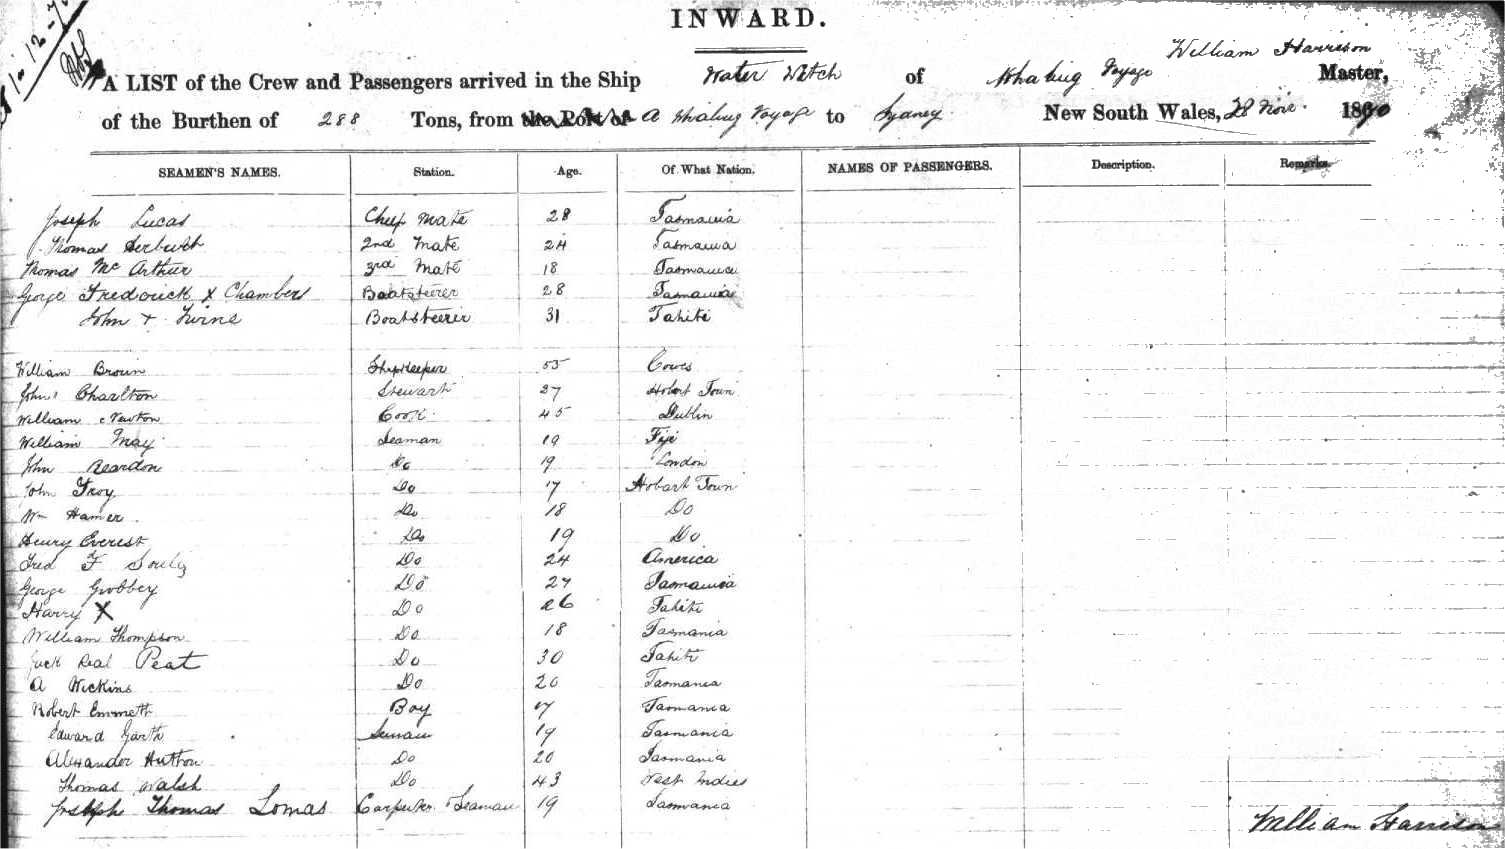 INWARD.
William Harrison
A LIST of the Crew and Passengers arrived in the Ship Water Witch of Whaling Voyage Master,
of the Burthen of 288 Tons, from the Port of A Whaling Voyage to Sydney New South Wales, 28 Nov. 1870
SEAMEN'S NAMES. Station. Age. Of What Nation. NAMES OF PASSENGERS. Description. Remarks.
Joseph Lucas Chief Mate 28 Tasmania
Thomas 2nd Mate 24 Tasmania
Thomas McArthur 3rd Mate 18 Tasmania
George Fredrick X Chambers Boatsteerer 28 Tasmania
John + Twins Boatsteerer 31 Tahiti
William Brown Shipkeeper 55 Cowes
John Charlton Stewart 27 Hobart Town
William Newton Cook 45 Dublin
William May Seaman 19 Fiji
John Reardon Do 19 London
John Troy Do 17 Hobart Town
Wm Hamer Do 18 Do
Henry Everest Do 19 Do
Fred F Do 24 America
George Grobbey Do 27 Tasmania
Harry X Do 26 Tahiti
William Thompson Do 18 Tasmania
Jack Real Peat Do 30 Tahiti
A Wickins Do 20 Tasmania
Robert Emmett Boy 17 Tasmania
Edward Garth Seaman 19 Tasmania
Alexander Hutton Do 20 Tasmania
Thomas Walsh Do 43 West Indies
Joseph Thomas Lomas Carpenter & Seaman 19 Tasmania
William Harrison